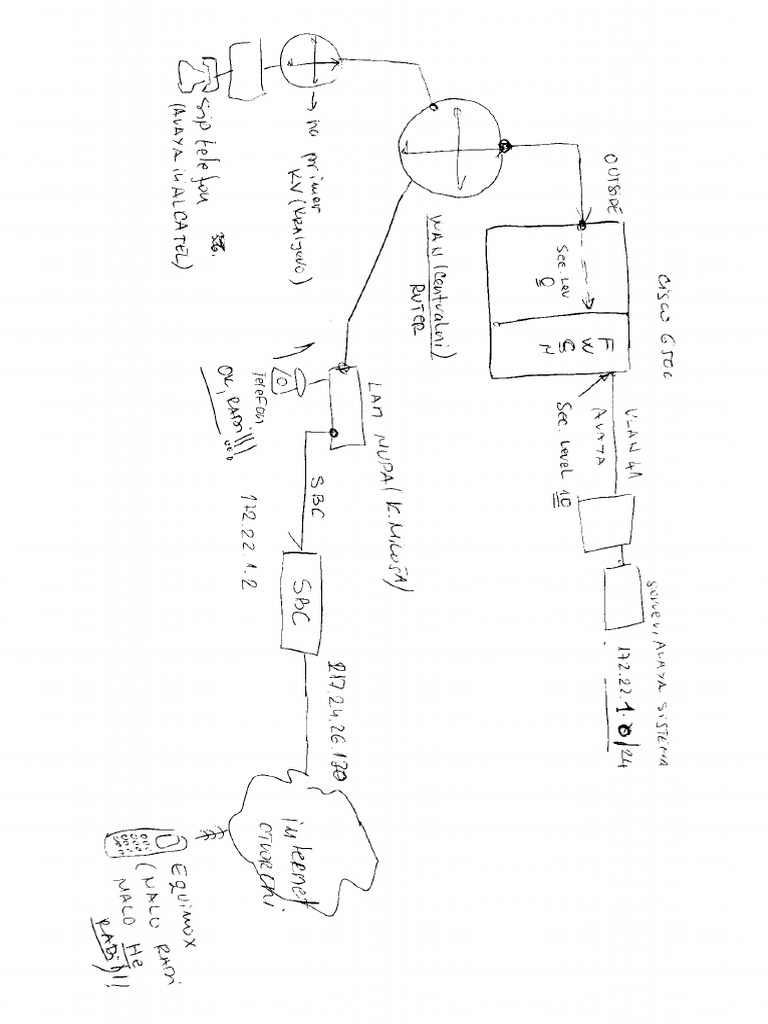 CISCO 6500
OUTSIDE
Sec. Lev
0
F
W
S
M
VLAN 41
AVAYA
Sec. Level 10
server, AVAYA SISTEMA
172.22.1.0/24
WAN (Centralni)
RUTER
→ na primer
KV (KRALJEVO)
sip telefon
(AVAYA ili ALCATEL)
LAN MUPA (K. MILOŠA)
TELEFON
OK, RADI!!!
SBC
SBC
172.22.1.2
217.24.26.130
internet
OTVORENI
EQUINOX
(MALO RADI
MALO NE
RADI)!!!